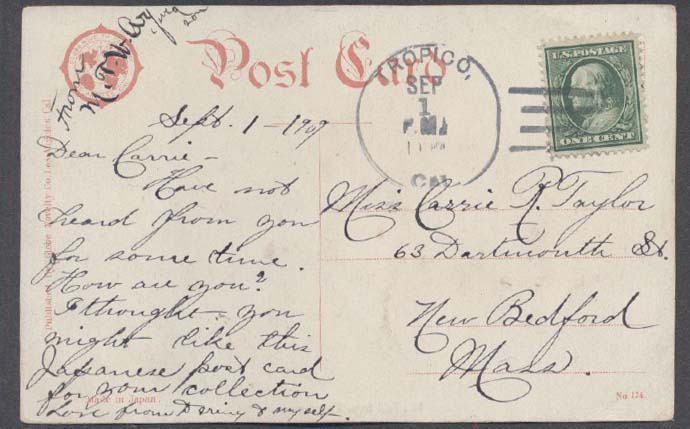 Post Card
TROPICO,
SEP
1
CAL
U.S. POSTAGE
ONE CENT
Sept. 1 - 1909
Dear Carrie -
Have not
heard from you
for some time.
How are you?
I thought you
might like this
Japanese post card
for your collection
Love from & myself.
from
Miss Carrie R. Taylor
63 Dartmouth St.
New Bedford
Mass.
Made in Japan.
No 174.
Novelty Co. Los Angeles Cal.